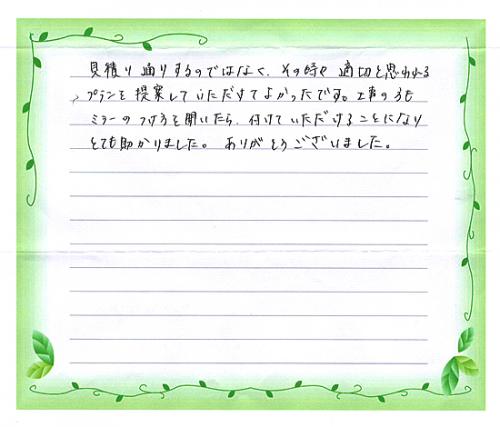 見積り通りするのではなく、その時々適切と思われる
プランを提案していただけてよかったです。工事のうち
ミラーのつけ方を聞いたら、付けていただけることになり
とても助かりました。ありがとうございました。